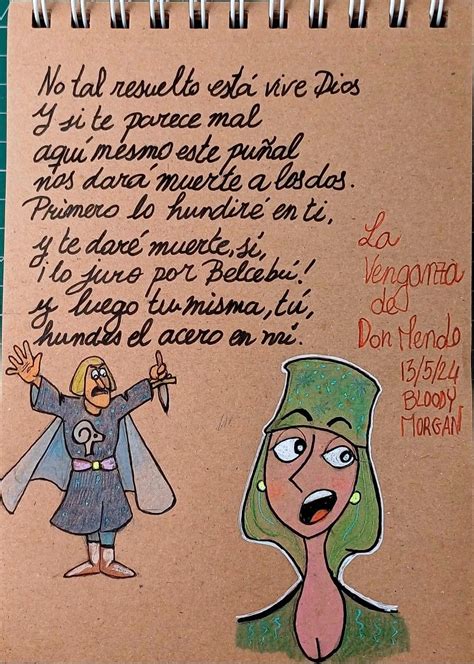 No tal resuelto está vive Dios
Y si te parece mal
aquí mesmo este puñal
nos dará muerte a los dos.
Primero lo hundiré en ti,
y te daré muerte, sí,
¡lo juro por Belcebú!
y luego tu misma, tú,
hundes el acero en mí.
La
Venganza
de
Don Mendo
13/5/24
BLOODY
MORGAN